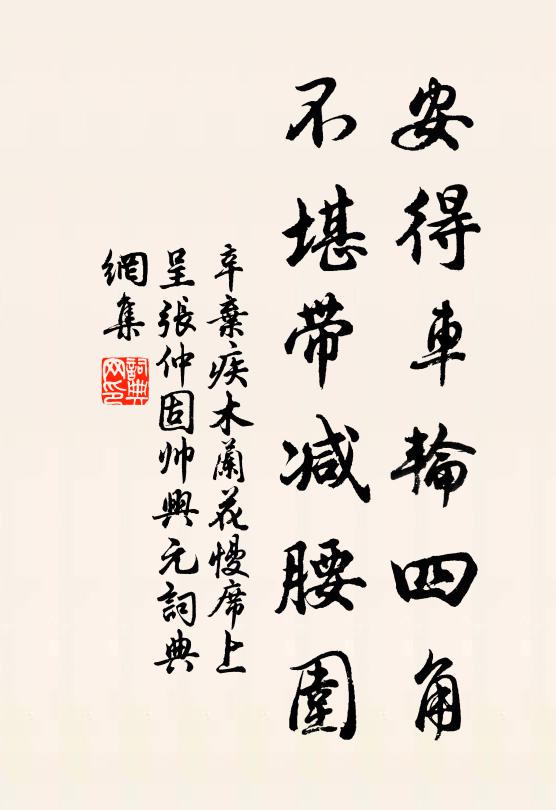 安得車輪四角
不堪帶减腰圍
辛棄疾木蘭花慢席上
呈張仲固帅興元詞典
網集
詞典网印